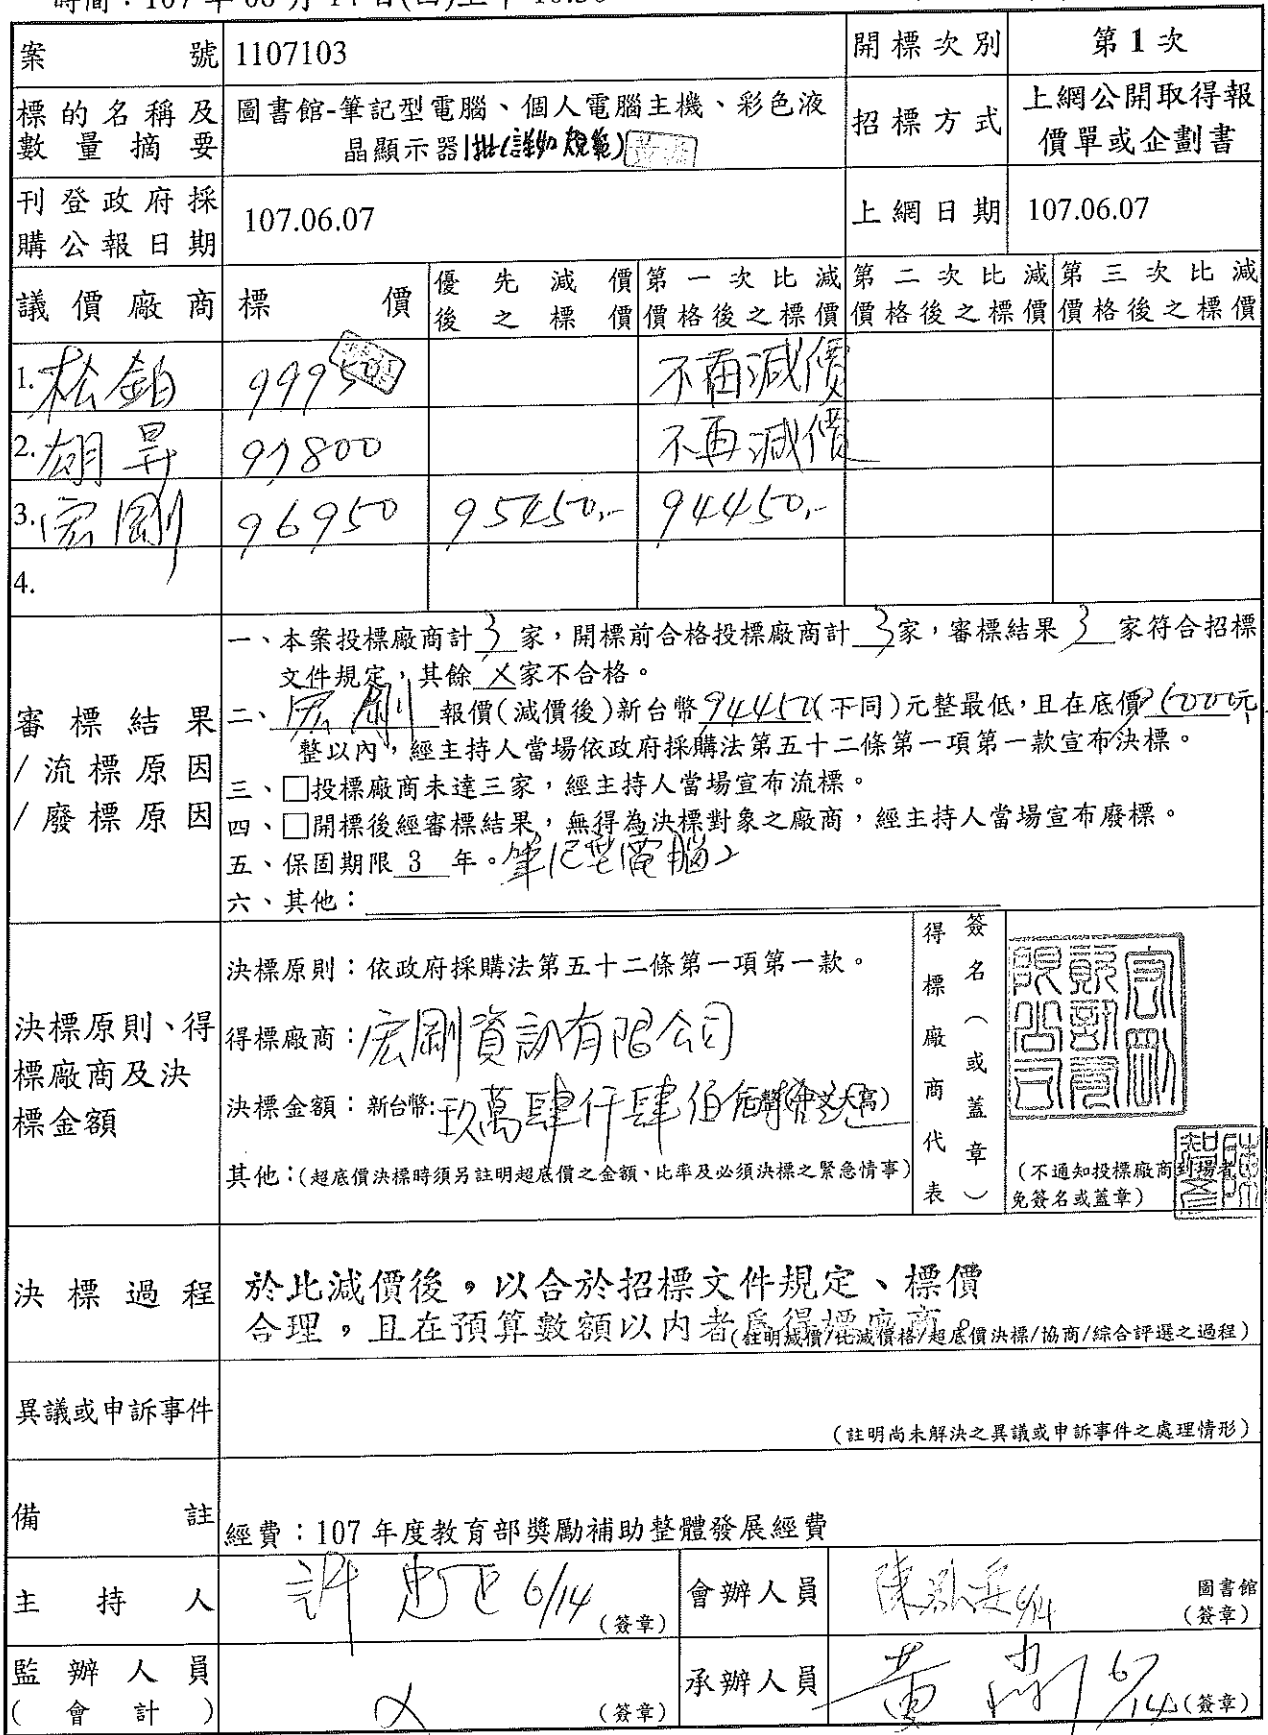 案號 1107103 開標次別 第1次
標的名稱及數量摘要 圖書館-筆記型電腦、個人電腦主機、彩色液
晶顯示器1批(詳如規範)
招標方式 上網公開取得報
價單或企劃書
刊登政府採
購公報日期 107.06.07 上網日期 107.06.07
議價廠商 標價 優先減價後之標價 第一次比減價格後之標價 第二次比減價格後之標價 第三次比減價格後之標價
1.松鉑 99950 不再減價
2.翃昇 97800 不再減價
3.宏剛 96950 95450,- 94450,-
4.
審標結果
/流標原因
/廢標原因
一、本案投標廠商計 3 家,開標前合格投標廠商計 3 家,審標結果 3 家符合招標
文件規定,其餘 X 家不合格。
二、宏剛 報價(減價後)新台幣 94450 (下同)元整最低,且在底價 95000元
整以內,經主持人當場依政府採購法第五十二條第一項第一款宣布決標。
三、□投標廠商未達三家,經主持人當場宣布流標。
四、□開標後經審標結果,無得為決標對象之廠商,經主持人當場宣布廢標。
五、保固期限 3 年。筆記型電腦2
六、其他:
決標原則、得
標廠商及決
標金額
決標原則:依政府採購法第五十二條第一項第一款。
得標廠商:宏剛資訊有限公司
決標金額:新台幣:玖萬肆仟肆佰伍
其他:(超底價決標時須另註明超底價之金額、比率及必須決標之緊急情事)
得標廠商代表
簽名(或蓋章)
宏剛資訊有限公司
(不通知投標廠商到場者
免簽名或蓋章)
決標過程
於比減價後,以合於招標文件規定、標價
合理,且在預算數額以內者為得標廠商。
(註明減價/比減價格/超底價決標/協商/綜合評選之過程)
異議或申訴事件
(註明尚未解決之異議或申訴事件之處理情形)
備註 經費:107 年度教育部獎勵補助整體發展經費
主持人 6/14 (簽章) 會辦人員 6/14 圖書館
(簽章)
監辦人員
(會計) X (簽章) 承辦人員 黃 6/14 (簽章)